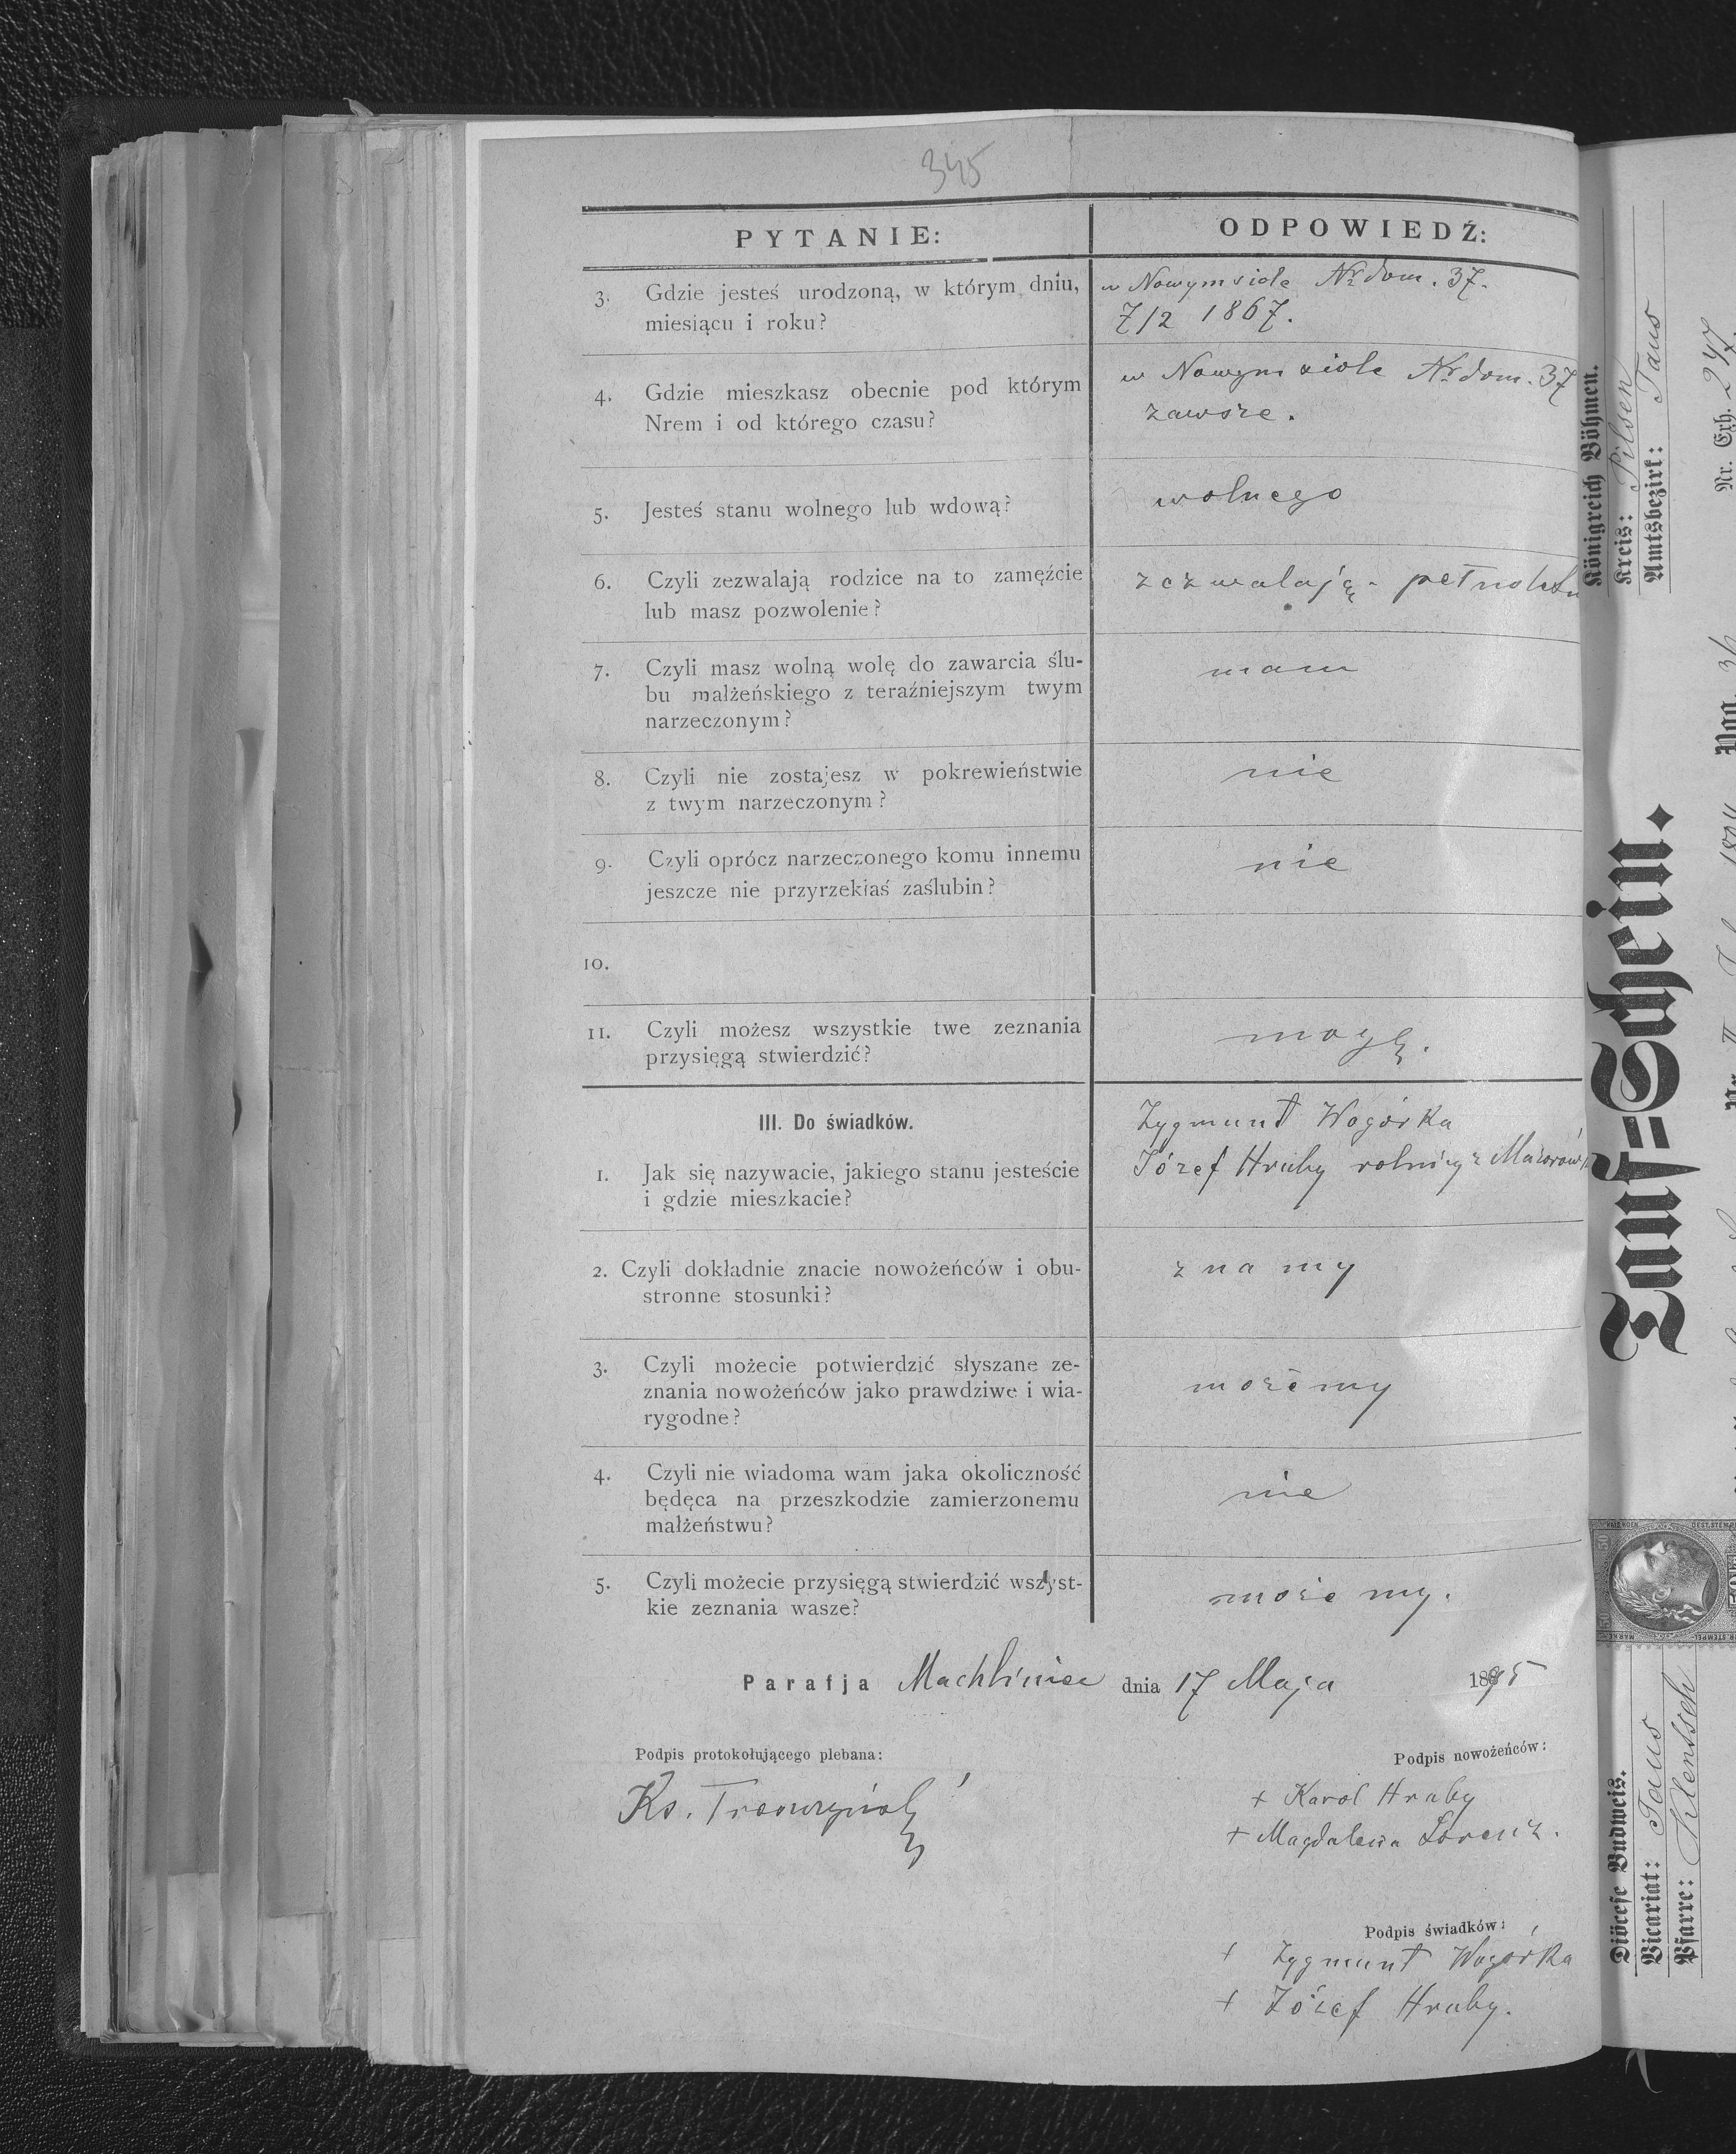 345
PYTANIE:
ODPOWIEDŹ:
3. Gdzie jesteś urodzoną, w którym dniu,
miesiącu i roku?
w Nowymsiole Nr dom. 37.
7/2 1867.
4. Gdzie mieszkasz obecnie pod którym
Nrem i od którego czasu?
w Nowym siole Nr dom. 37
zawsze.
5. Jesteś stanu wolnego lub wdową?
wolnego
6. Czyli zezwalają rodzice na to zamęźcie
lub masz pozwolenie?
zezwalają -
7. Czyli masz wolną wolę do zawarcia ślu-
bu małżeńskiego z teraźniejszym twym
narzeczonym?
mam
8. Czyli nie zostajesz w pokrewieństwie
z twym narzeczonym?
nie
9. Czyli oprócz narzeczonego komu innemu
jeszcze nie przyrzekłaś zaślubin?
nie
10.
11. Czyli możesz wszystkie twe zeznania
przysięgą stwierdzić?
mogę.
III. Do świadków.
1. Jak się nazywacie, jakiego stanu jesteście
i gdzie mieszkacie?
Zygmunt Wogórka
Józef Hruby rolnicy z
2. Czyli dokładnie znacie nowożeńców i obu-
stronne stosunki?
znamy
3. Czyli możecie potwierdzić słyszane ze-
znania nowożeńców jako prawdziwe i wia-
rygodne?
możemy
4. Czyli nie wiadoma wam jaka okoliczność
będęca na przeszkodzie zamierzonemu
małżeństwu?
nie
5. Czyli możecie przysięgą stwierdzić wszyst-
kie zeznania wasze?
możemy.
Parafja Machliniec dnia 17 Maja 1895
Podpis protokołującego plebana:
Ks.
Podpis nowożeńców:
+ Karol Hruby
+ Magdalena Lorenz.
Podpis świadków:
+ Zygmunt Wogórka
+ Józef Hruby.
Königreich Böhmen.
Kreis: Pilsen
Amtsbezirk: Taus
Nr. Exh. 247
Tauf=Schein.
Diöcese Budweis.
Vicariat: Taus
Pfarre: Klentsch